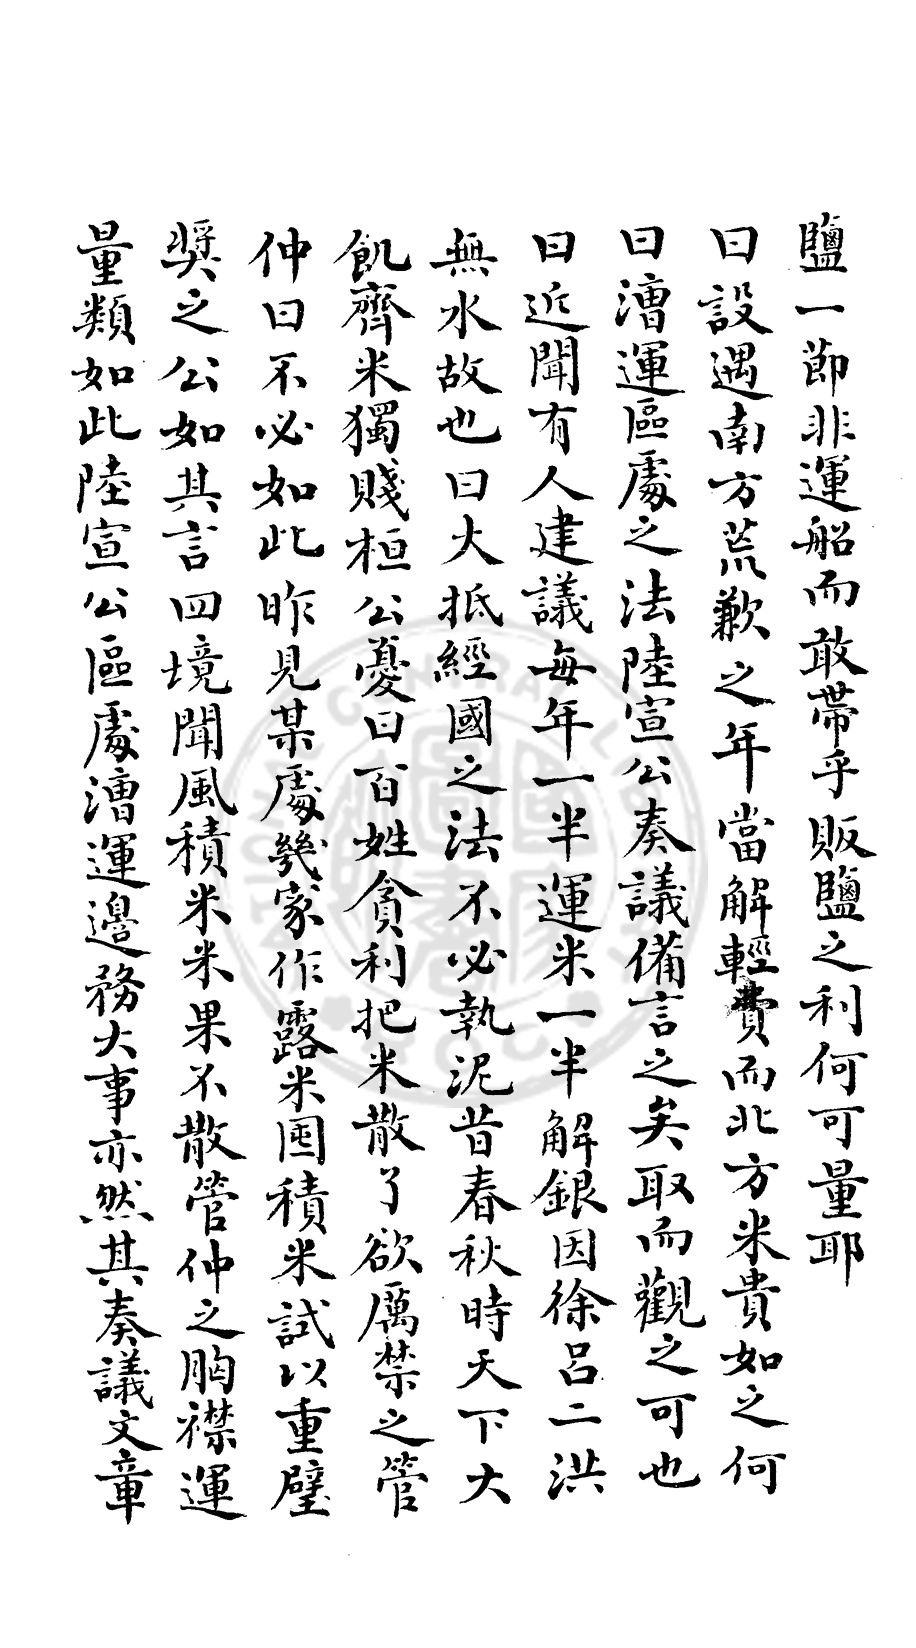 鹽一節非運船而敢帶乎販鹽之利何可量耶
曰設遇南方荒歉之年當解輕費而北方米貴如之何
曰漕運區處之法陸宣公奏議備言之矣取而觀之可也
曰近聞有人建議每年一半運米一半解銀因徐呂二洪
無水故也曰大抵經國之法不必執泥昔春秋時天下大
飢齊米獨賤桓公憂曰百姓貪利把米散了欲厲禁之管
仲曰不必如此昨見某處幾家作露米囤積米試以重璧
奬之公如其言四境聞風積米米果不散管仲之胸襟運
量類如此陸宣公區處漕運邊務大事亦然其奏議文章